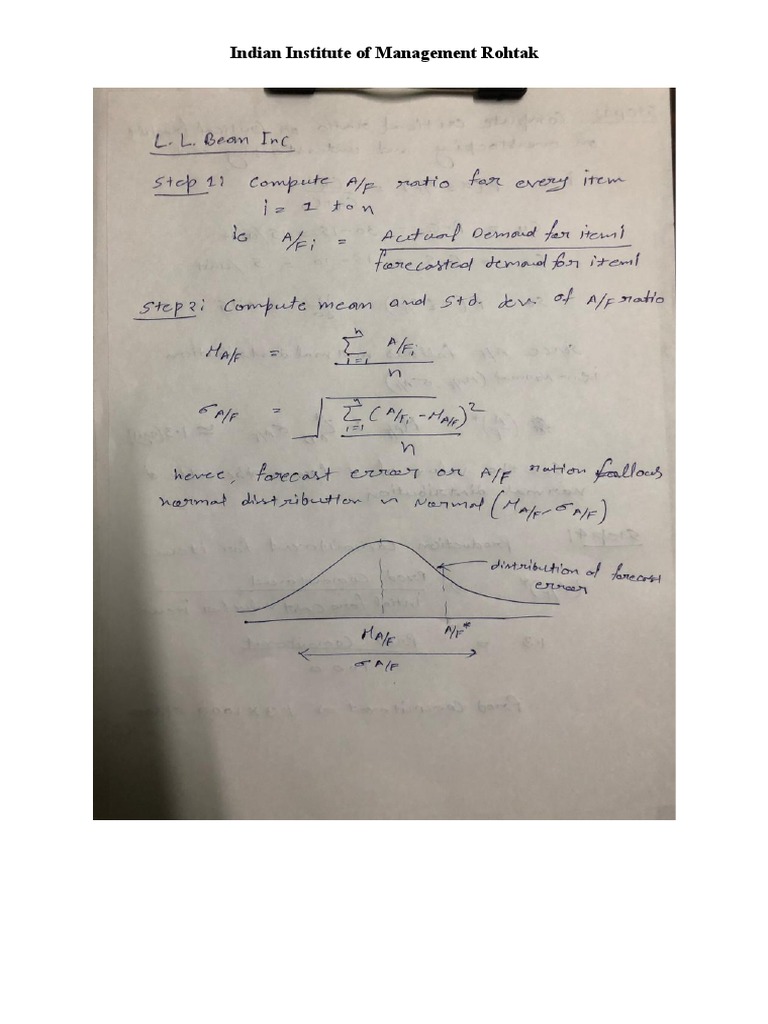 Indian Institute of Management Rohtak
L. L. Bean Inc.
Step 1: Compute A/F ratio for every item
i = 1 to n
ie A/Fi = Actual Demand for item1
forecasted demand for item1
Step 2: Compute mean and Std. dev. of A/F ratio
μA/F = n∑i=1 A/Fi
n
σA/F = √ n∑i=1 (A/Fi - μA/F)²
n
hence, forecast error or A/F ration follows
normal distribution ~ Normal (μA/F, σA/F)
distribution of forecast
error
μA/F A/F*
σ A/F